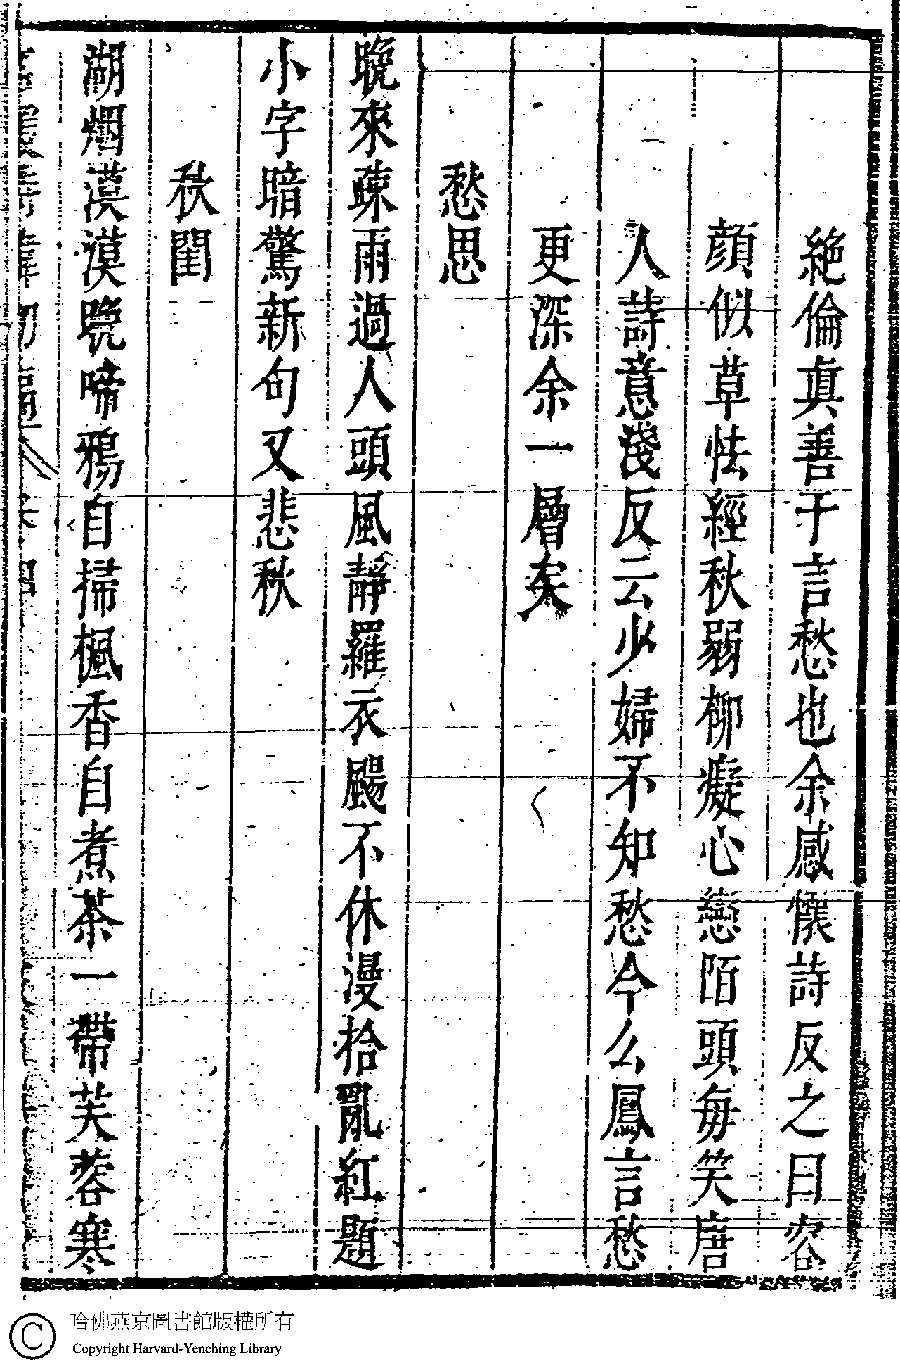 絶倫真善于言愁也余感懷詩反之曰容
顔似草怯經秋弱柳癡心戀陌頭每笑唐
人詩意淺反云少婦不知愁今么鳳言愁
更深余一層矣
愁思
晩來疎雨過人頭風靜羅衣颺不休漫拾亂紅題
小字暗驚新句又悲秋
秋閨
湖烟漠漠晩啼鴉自掃楓香自煮茶一帶芙蓉寒
哈佛燕京圖書館版權所有
Copyright Harvard-Yenching Library